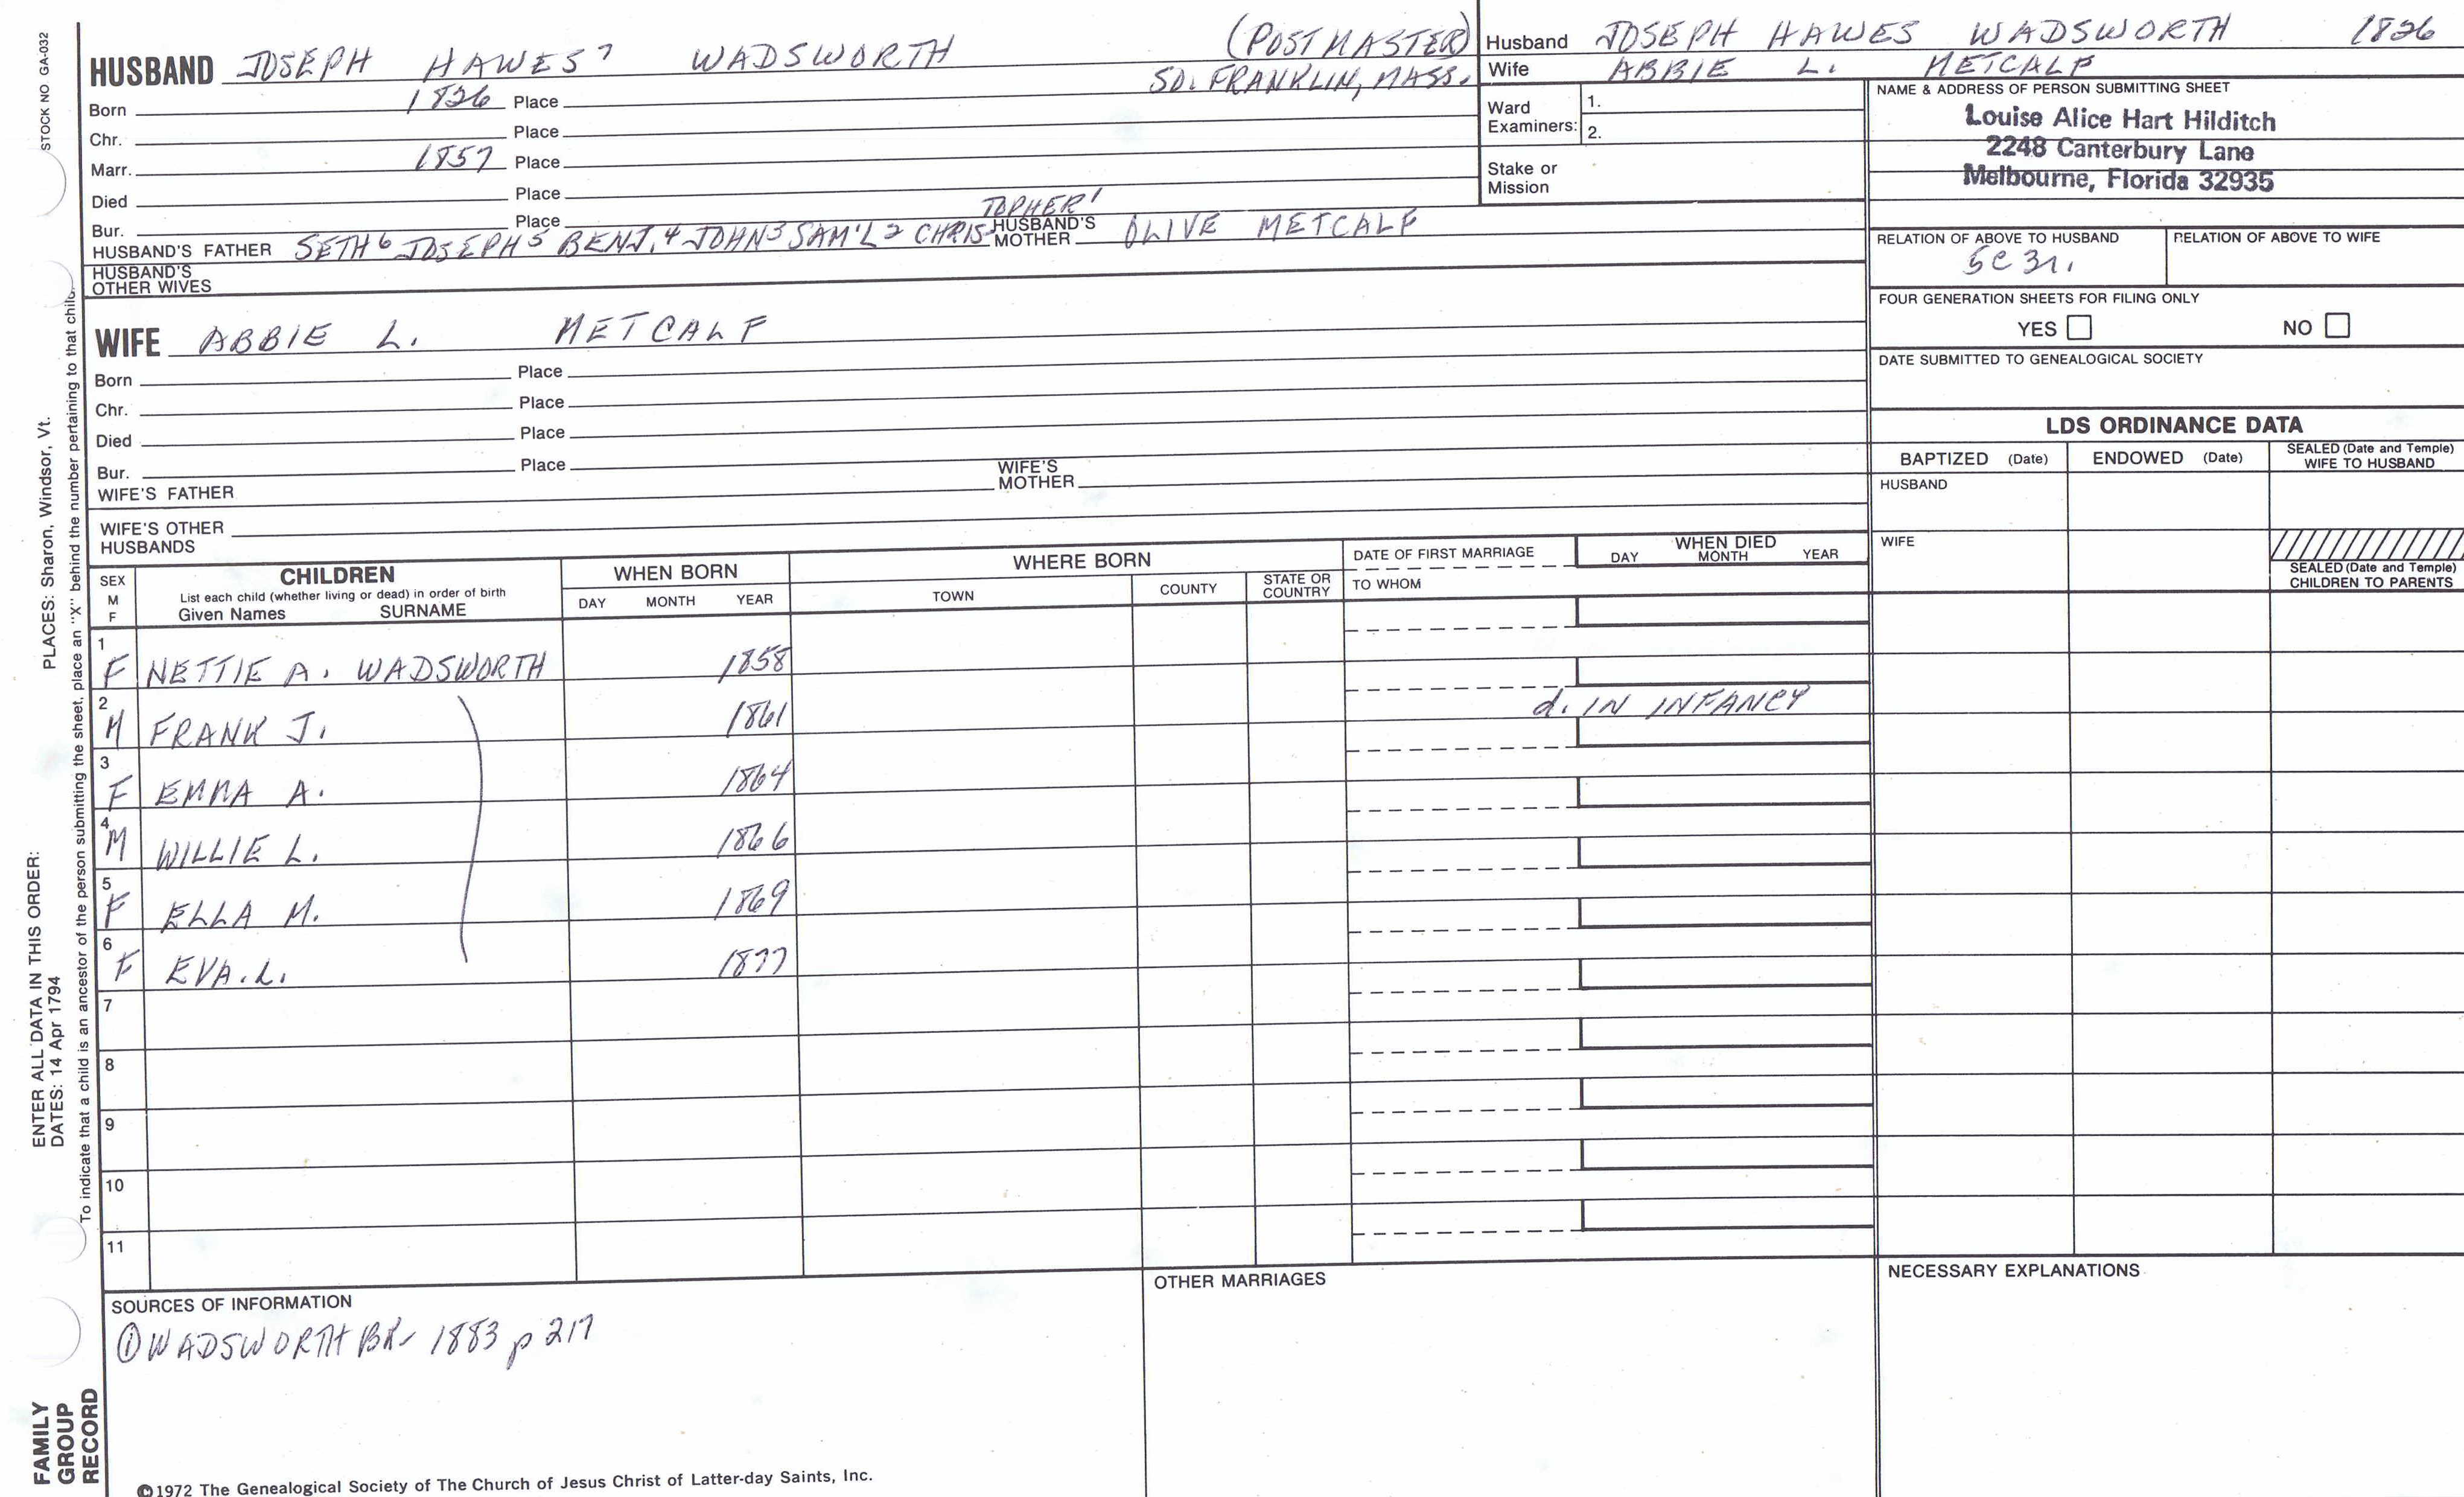 STOCK NO GA-032
PLACES: Sharon, Windsor, Vt.
ENTER ALL DATA IN THIS ORDER:
DATES: 14 Apr 1794
To indicate that a child is an ancestor of the person submitting the sheet, place an "X" behind the number pertaining to that child.
FAMILY
GROUP
RECORD
HUSBAND JOSEPH HAWES7 WADSWORTH (POSTMASTER)
SO. FRANKLIN, MASS.
Born 1826 Place
Chr. Place
Marr. 1857 Place
Died Place
Bur. Place
TOPHER1
HUSBAND'S FATHER SETH6 JOSEPH5 BENJ.4 JOHN3 SAM'L2 CHRIS- HUSBAND'S MOTHER OLIVE METCALF
HUSBAND'S
OTHER WIVES
WIFE ABBIE L. METCALF
Born Place
Chr. Place
Died Place
Bur. Place
WIFE'S FATHER WIFE'S MOTHER
WIFE'S OTHER
HUSBANDS
Husband JOSEPH HAWES WADSWORTH 1826
Wife ABBIE L. METCALF
Ward
Examiners:
1.
2.
Stake or
Mission
NAME & ADDRESS OF PERSON SUBMITTING SHEET
Louise Alice Hart Hilditch
2248 Canterbury Lane
Melbourne, Florida 32935
RELATION OF ABOVE TO HUSBAND RELATION OF ABOVE TO WIFE
5C3r.
FOUR GENERATION SHEETS FOR FILING ONLY
YES NO
DATE SUBMITTED TO GENEALOGICAL SOCIETY
LDS ORDINANCE DATA
BAPTIZED (Date) ENDOWED (Date) SEALED (Date and Temple)
WIFE TO HUSBAND
HUSBAND
WIFE
SEALED (Date and Temple)
CHILDREN TO PARENTS
SEX
M
F
CHILDREN
List each child (whether living or dead) in order of birth
Given Names SURNAME
WHEN BORN
DAY MONTH YEAR
WHERE BORN
TOWN COUNTY STATE OR COUNTRY
DATE OF FIRST MARRIAGE
TO WHOM
WHEN DIED
DAY MONTH YEAR
1 F NETTIE A. WADSWORTH 1858
2 M FRANK J. 1861 d. IN INFANCY
3 F EMMA A. 1864
4 M WILLIE L. 1866
5 F ELLA M. 1869
6 F EVA.L. 1877
7
8
9
10
11
SOURCES OF INFORMATION
① WADSWORTH BK 1883 p 217
OTHER MARRIAGES
NECESSARY EXPLANATIONS
©1972 The Genealogical Society of The Church of Jesus Christ of Latter-day Saints, Inc.